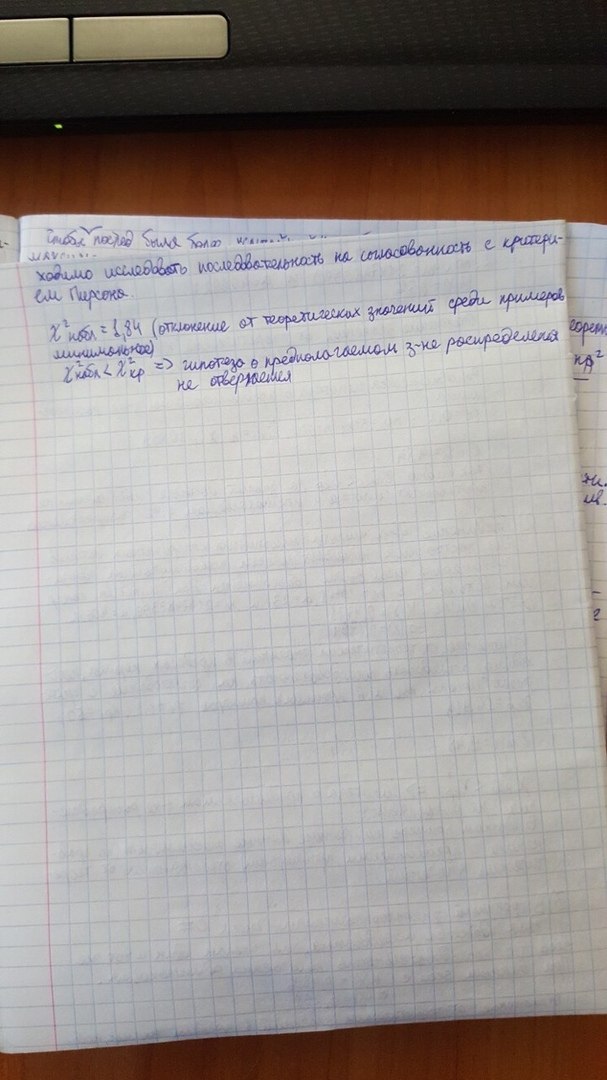 чтобы послед была более
ходимо исследовать последовательность на согласованность с критери-
ем Пирсона.
χ²набл = 1,84 (отклонение от теоретических значений среди примеров
минимальное)
χ²набл < χ²кр => гипотеза о предполагаемом з-не распределена
не отвергается